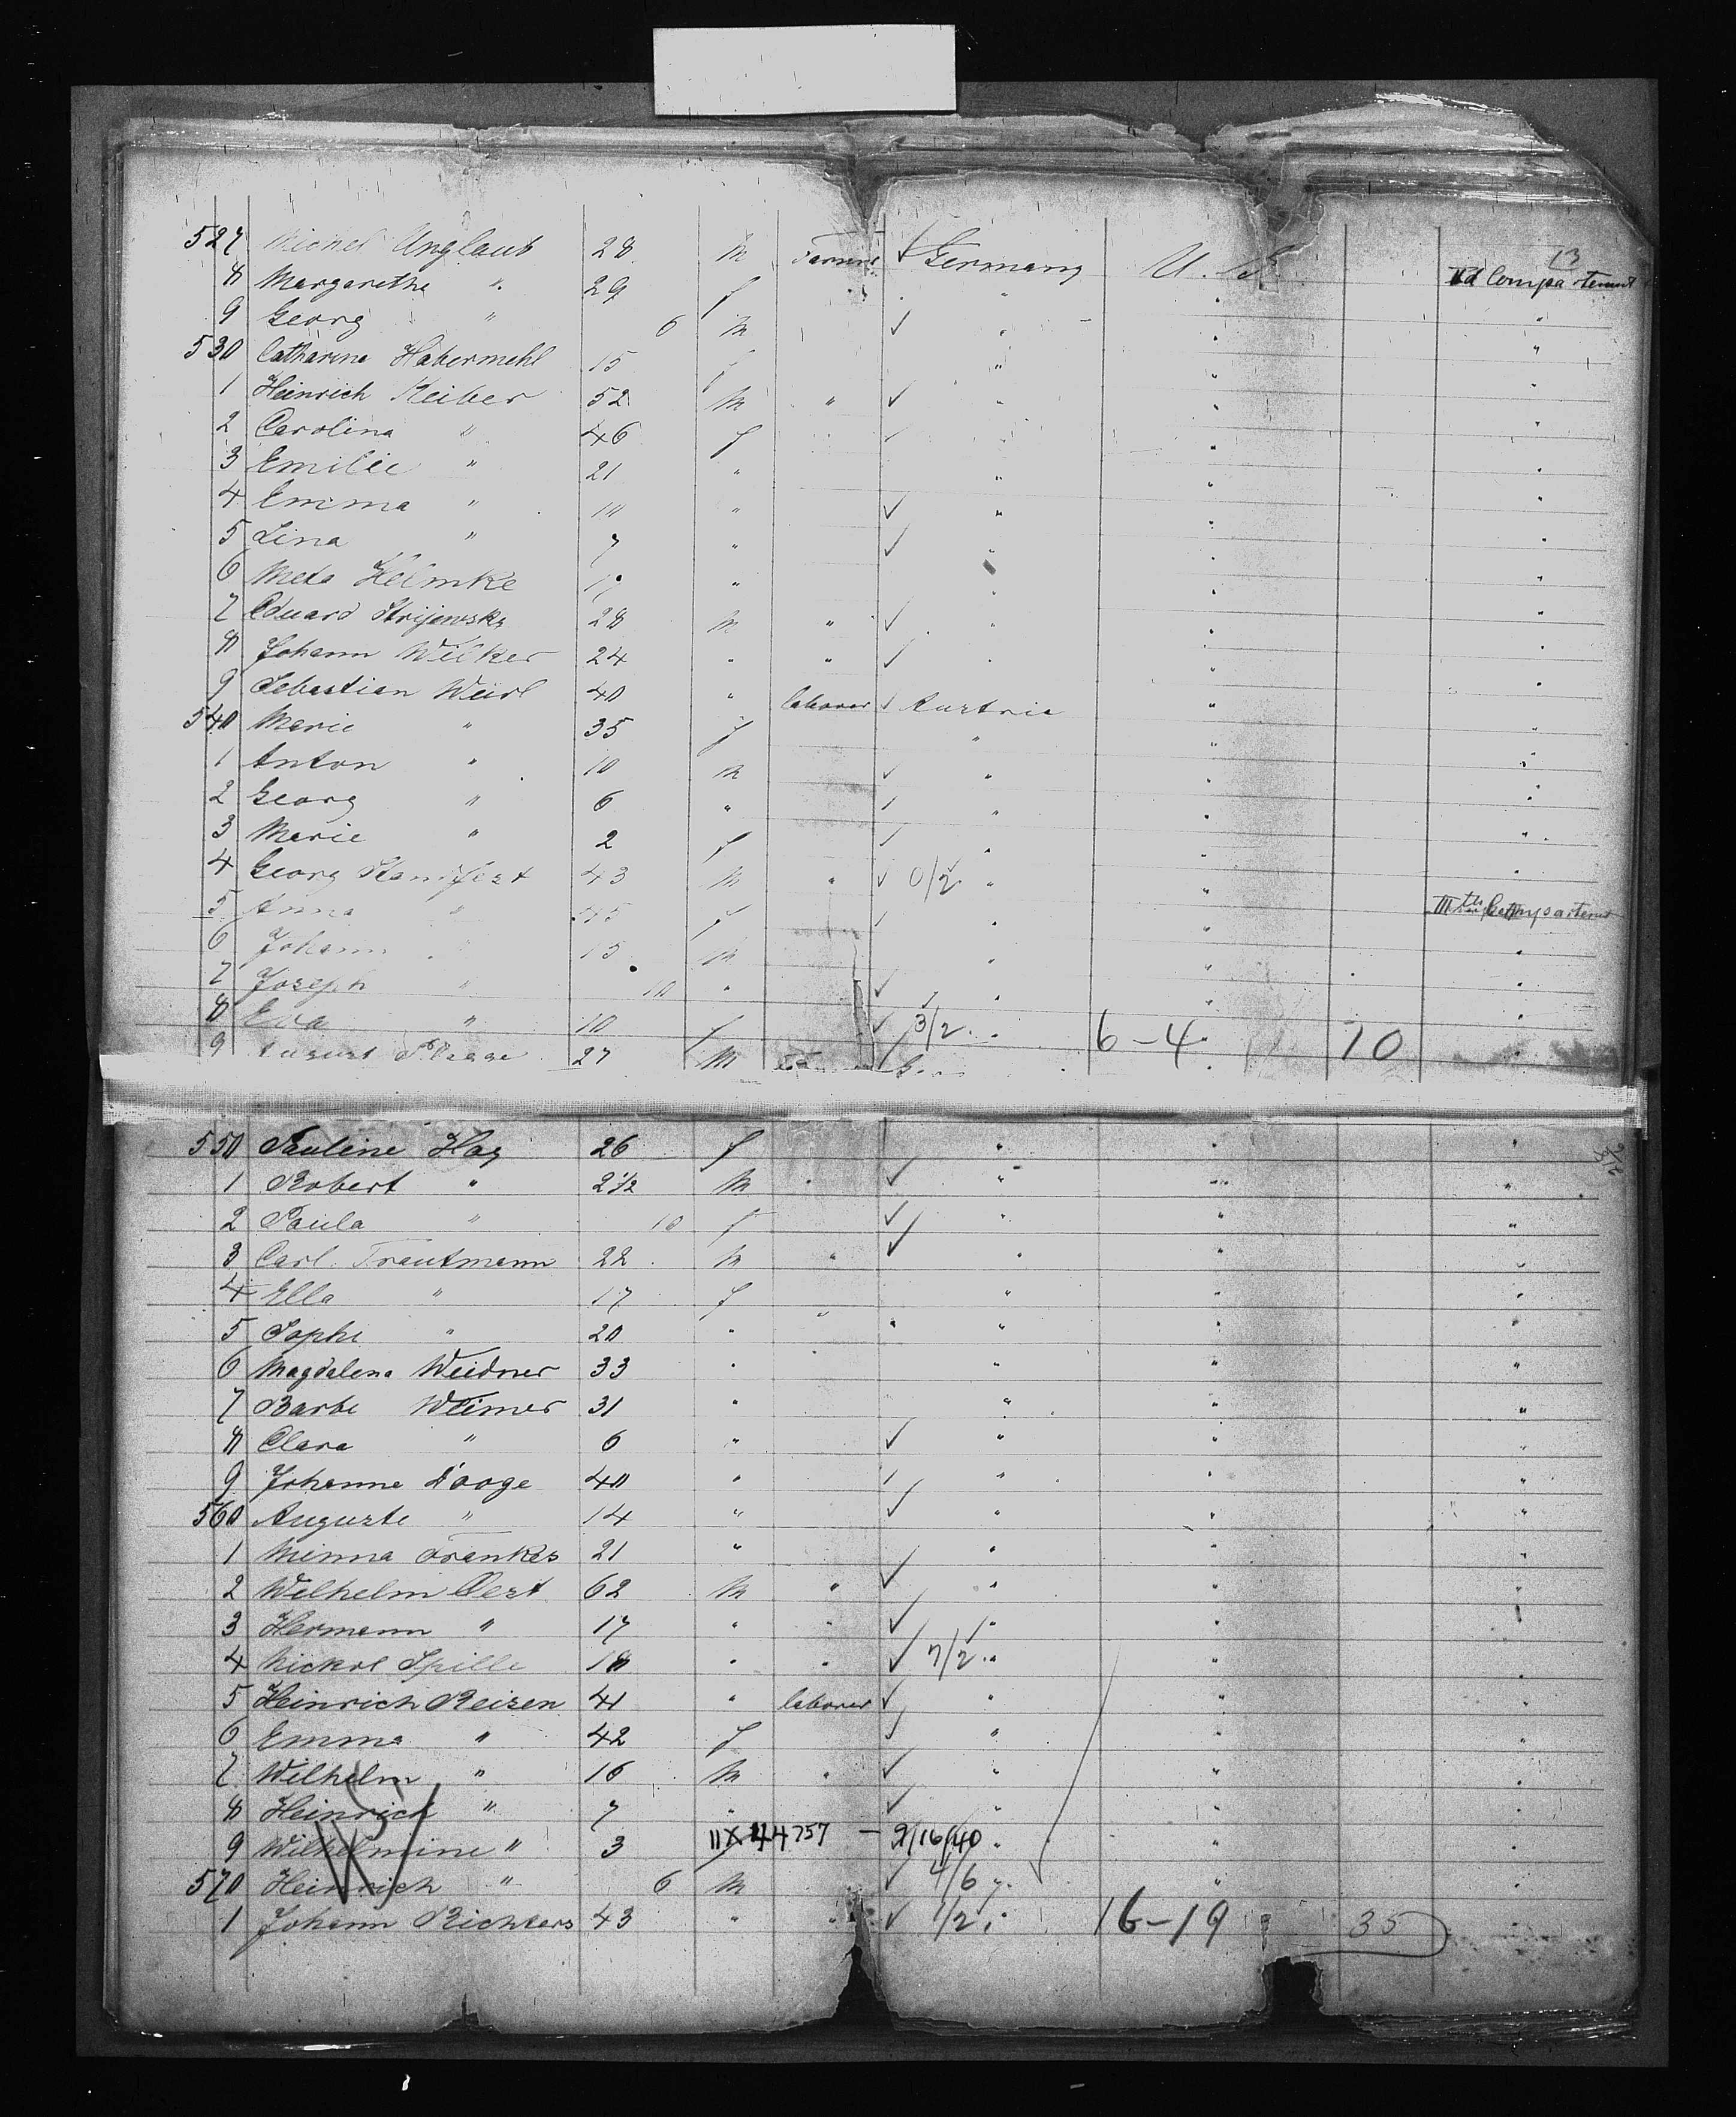 13
527 Michel Unglaub 28 M Farmer ✓ Germany U. S. IId Compartement
8 Margarethe " 29 f " " "
9 Georg " 6 M ✓ " " "
530 Catharina Habermehl 15 f " " "
1 Heinrich Keiber 52 M " ✓ " " "
2 Carolina " 46 f ✓ " " "
3 Emilie " 21 " " " "
4 Emma " 11 " ✓ " " "
5 Lina " 7 " ✓ " " "
6 Meta Helmke " " " "
7 Eduard 28 M " ✓ " " "
8 Johann Wilker 24 " " ✓ " " "
9 Sebastian Weirl 40 " laborer ✓ Austria " "
540 Marie " 35 f " " "
1 Anton " 10 M ✓ " " "
2 Georg " 6 " ✓ " " "
3 Marie " 2 f ✓ " " "
4 Georg 43 M " ✓ 0/2 " " "
5 Anna " 45 f ✓ " " IIIth Compartement
6 Johann " 15 M " " "
7 Joseph " 10 " ✓ " " "
8 Eva " 10 f ✓ 3/2 " 6-4 " 10 "
9 August 27 M " "
550 Pauline Hag 26 f " " "
1 Robert " 2 1/2 M ✓ " " "
2 Paula " 10 f ✓ " " "
3 Carl Trautmann 22 M " ✓ " " "
4 Ella " 17 f " " " "
5 Sophi " 20 " " " "
6 Magdalena Weidner 33 " " " "
7 Barbe Weimer 31 " " " "
8 Clara " 6 " ✓ " " "
9 Johanne Dooge 40 " ✓ " " "
560 Auguste " 14 " ✓ " " "
1 Minna Frankes 21 " " " "
2 Wilhelm Oest 62 M " ✓ " " "
3 Hermann " 17 " " ✓ " " "
4 Nickol Spille 18 " " ✓ 7/2 " " "
5 Heinrich Reisen 41 " laborer ✓ " " "
6 Emma " 42 f ✓ " " "
7 Wilhelm " 16 M " ✓ " " "
8 Heinrich " 7 " ✓ " " "
9 Wilhelmine " 3 11X44757 — 9/16/40 " " "
570 Heinrich " 6 M ✓ 4/6 " " "
1 Johann Richters 43 " " ✓ 1/2 " 16-19 " 35 "